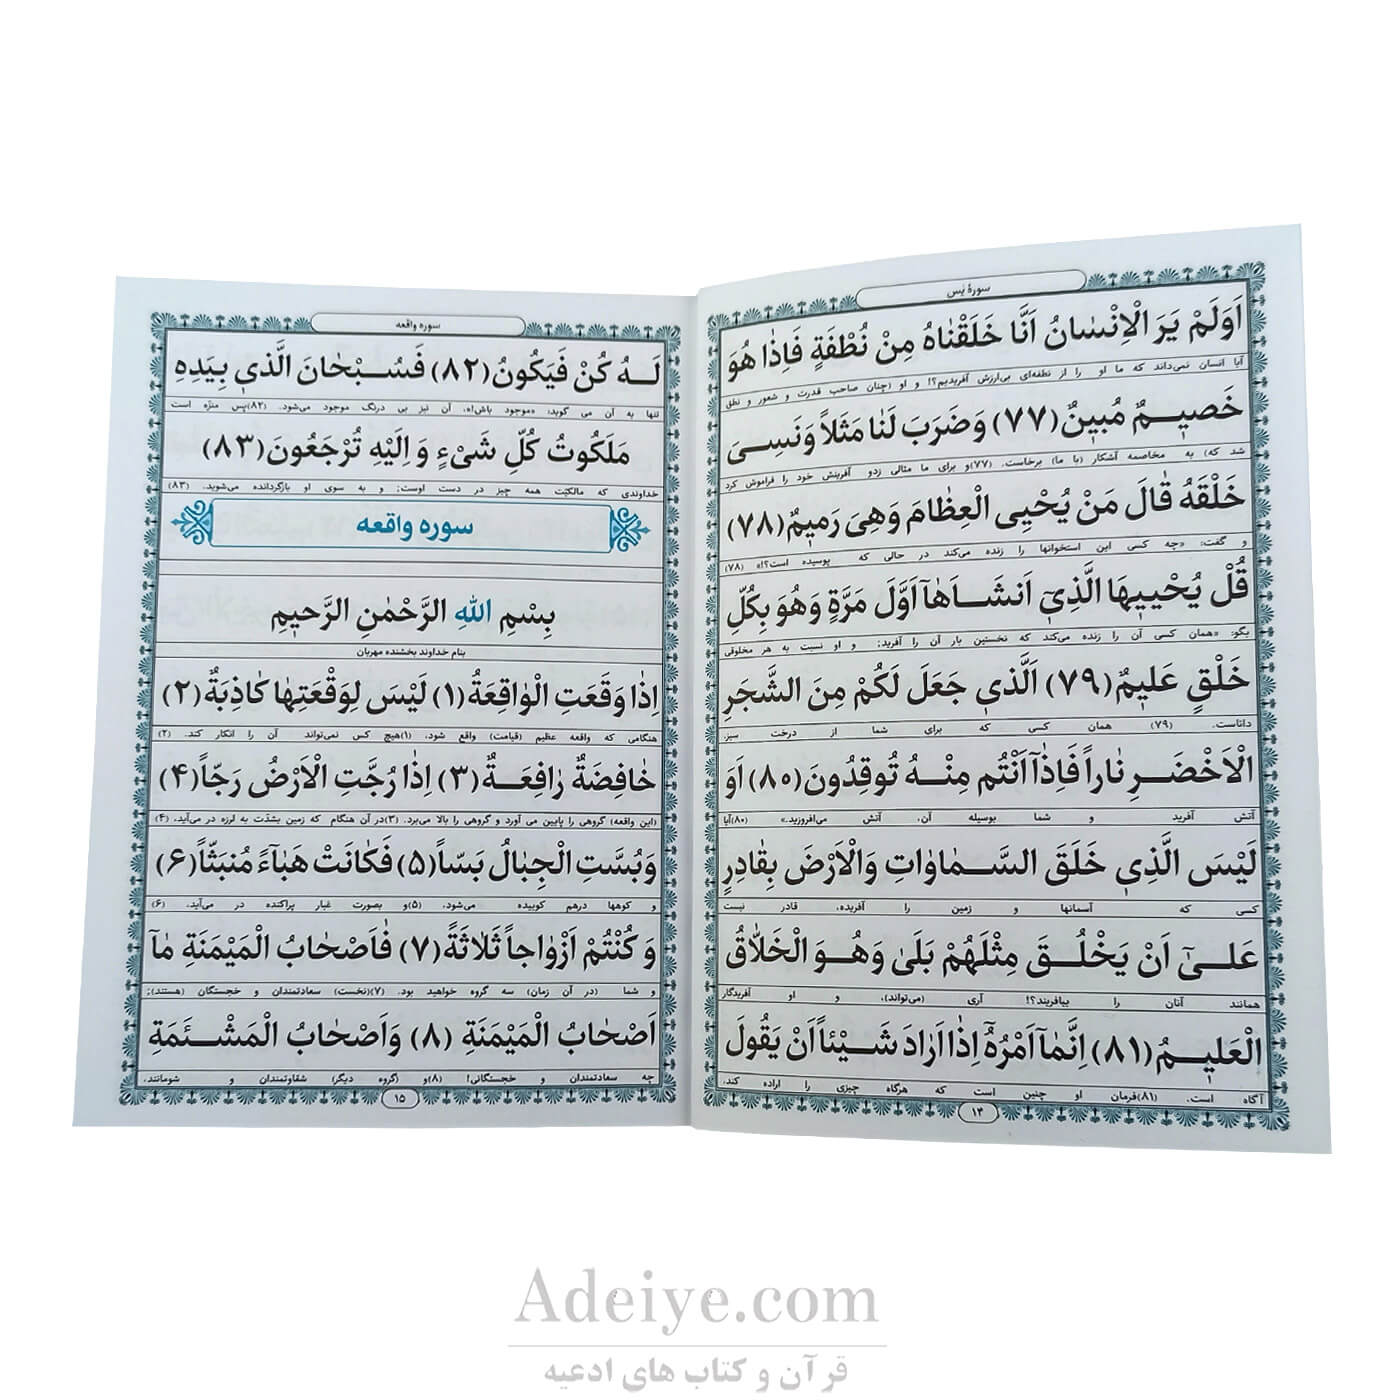 سورهٔ یٰس
اَوَلَمْ يَرَ الْاِنْسٰانُ اَنَّا خَلَقْنٰاهُ مِنْ نُطْفَةٍ فَاِذٰا هُوَ
آیا انسان نمی‌داند که ما او را از نطفه‌ای بی‌ارزش آفریدیم؟! و او (چنان صاحب قدرت و شعور و نطق
خَصيمٌ مُبينٌ (۷۷) وَضَرَبَ لَنٰا مَثَلاً وَنَسِىَ
شد که) به مخاصمه آشکار (با ما) برخاست. (۷۷)و برای ما مثالی زدو آفرینش خود را فراموش کرد
خَلْقَهُ قٰالَ مَنْ يُحْيِى الْعِظٰامَ وَهِىَ رَميمٌ (۷۸)
و گفت: «چه کسی این استخوانها را زنده می‌کند در حالی که پوسیده است؟!» (۷۸)
قُلْ يُحْييهَا الَّذِىٓ اَنشَاَهٰآ اَوَّلَ مَرَّةٍ وَهُوَ بِكُلِّ
بگو: «همان کسی آن را زنده می‌کند که نخستین بار آن را آفرید؛ و او نسبت به هر مخلوقی
خَلْقٍ عَليمٌ (۷۹) اَلَّذى جَعَلَ لَكُمْ مِنَ الشَّجَرِ
داناست. (۷۹) همان کسی که برای شما از درخت سبز،
الْاَخْضَرِ نٰاراً فَاِذٰآ اَنْتُم مِنْهُ تُوقِدُونَ (۸۰) اَوَ
آتش آفرید و شما بوسیله آن، آتش می‌افروزید.» (۸۰)آیا
لَيْسَ الَّذى خَلَقَ السَّمٰاوٰاتِ وَالْاَرْضَ بِقٰادِرٍ
کسی که آسمانها و زمین را آفریده، قادر نیست
عَلىٰٓ اَنْ يَخْلُقَ مِثْلَهُمْ بَلَىٰ وَهُوَ الْخَلّٰاقُ
همانند آنان را بیافریند؟! آری (می‌تواند)، و او آفریدگار
الْعَليمُ (۸۱) اِنَّمٰآ اَمْرُهُٓ اِذٰا اَرٰادَ شَيْئاً اَنْ يَقُولَ
آگاه است. (۸۱)فرمان او چنین است که هرگاه چیزی را اراده کند،
۱۴
سوره واقعه
لَهُ كُنْ فَيَكُونُ (۸۲) فَسُبْحٰانَ الَّذى بِيَدِهِ
تنها به آن می گوید: «موجود باش!»، آن نیز بی درنگ موجود می‌شود. (۸۲)پس منزّه است
مَلَكُوتُ كُلِّ شَىْءٍ وَ اِلَيْهِ تُرْجَعُونَ (۸۳)
خداوندی که مالکیّت همه چیز در دست اوست؛ و به سوی او بازگردانده می‌شوید. (۸۳)
سوره واقعه
بِسْمِ اللهِ الرَّحْمٰنِ الرَّحيمِ
بنام خداوند بخشنده مهربان
اِذٰا وَقَعَتِ الْوٰاقِعَةُ (۱) لَيْسَ لِوَقْعَتِهٰا كٰاذِبَةٌ (۲)
هنگامی که واقعه عظیم (قیامت) واقع شود، (۱)هیچ کس نمی‌تواند آن را انکار کند. (۲)
خٰافِضَةٌ رٰافِعَةٌ (۳) اِذٰا رُجَّتِ الْاَرْضُ رَجّاً (۴)
(این واقعه) گروهی را پایین می آورد و گروهی را بالا می‌برد. (۳)در آن هنگام که زمین بشدّت به لرزه در می‌آید، (۴)
وَبُسَّتِ الْجِبٰالُ بَسّاً (۵) فَكٰانَتْ هَبٰآءً مُنبَثّاً (۶)
و کوهها درهم کوبیده می‌شود، (۵)و بصورت غبار پراکنده در می‌آید، (۶)
وَ كُنْتُمْ اَزْوٰاجاً ثَلٰاثَةً (۷) فَاَصْحٰابُ الْمَيْمَنَةِ مٰآ
و شما (در آن زمان) سه گروه خواهید بود. (۷)(نخست) سعادتمندان و خجستگان (هستند)؛
اَصْحٰابُ الْمَيْمَنَةِ (۸) وَاَصْحٰابُ الْمَشْئَمَةِ
چه سعادتمندان و خجستگانی! (۸)و (گروه دیگر) شقاوتمندان و شومانند،
۱۵
Adeiye.com
قرآن و کتاب های ادعیه